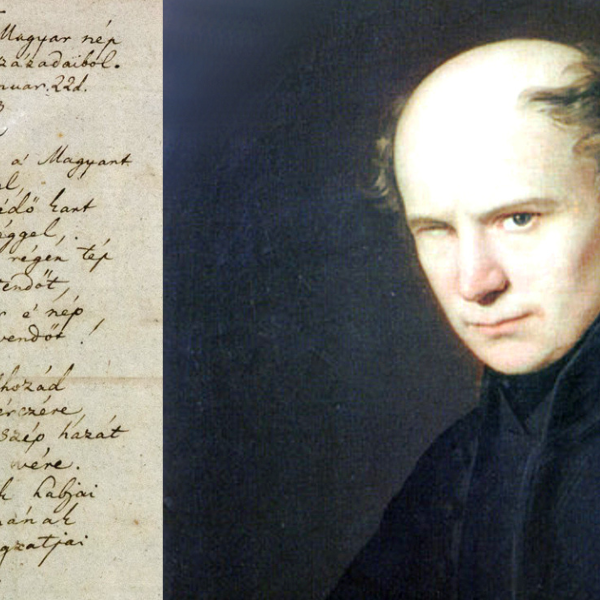 Magyar nép
századaiból.
nuar. 22d.
3
a' Magyart
al,
édő kart
séggel,
régen tép
tendőt,
r e' nép
vendőt!
lhozád
érczére,
szép hazát
vére.
k habjai
nának
gzatjai